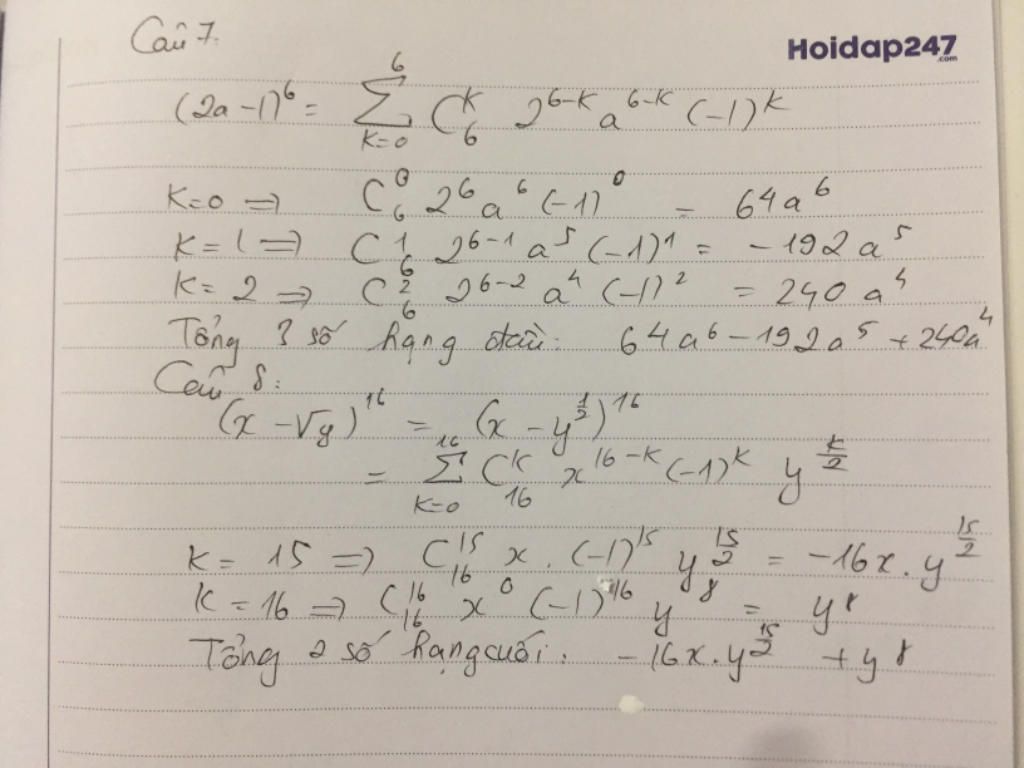 Câu 7.
Hoidap247
.com
(2a-1)⁶ = ∑_{K=0}^{6} C_6^K 2^{6-K} a^{6-K} (-1)^K
K=0 ⇒ C_6^0 2⁶ a⁶ (-1)⁰ = 64a⁶
K=1 ⇒ C_6^1 2^{6-1} a⁵ (-1)¹ = -192a⁵
K=2 ⇒ C_6^2 2^{6-2} a⁴ (-1)² = 240a⁴
Tổng 3 số hạng đầu: 64a⁶ - 192a⁵ + 240a⁴
Câu 8:
(x - √y)^{16} = (x - y^{1/2})^{16}
= ∑_{K=0}^{16} C_{16}^K x^{16-K} (-1)^K y^{K/2}
K = 15 ⇒ C_{16}^{15} x . (-1)^{15} y^{15/2} = -16x . y^{15/2}
K = 16 ⇒ C_{16}^{16} x⁰ (-1)^{16} y⁸ = y⁸
Tổng 2 số hạng cuối: -16x . y^{15/2} + y⁸